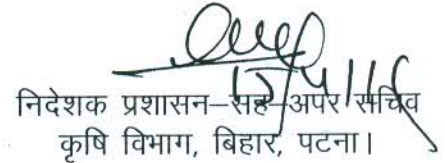 निदेशक प्रशासन–सह–अपर सचिव
कृषि विभाग, बिहार, पटना।